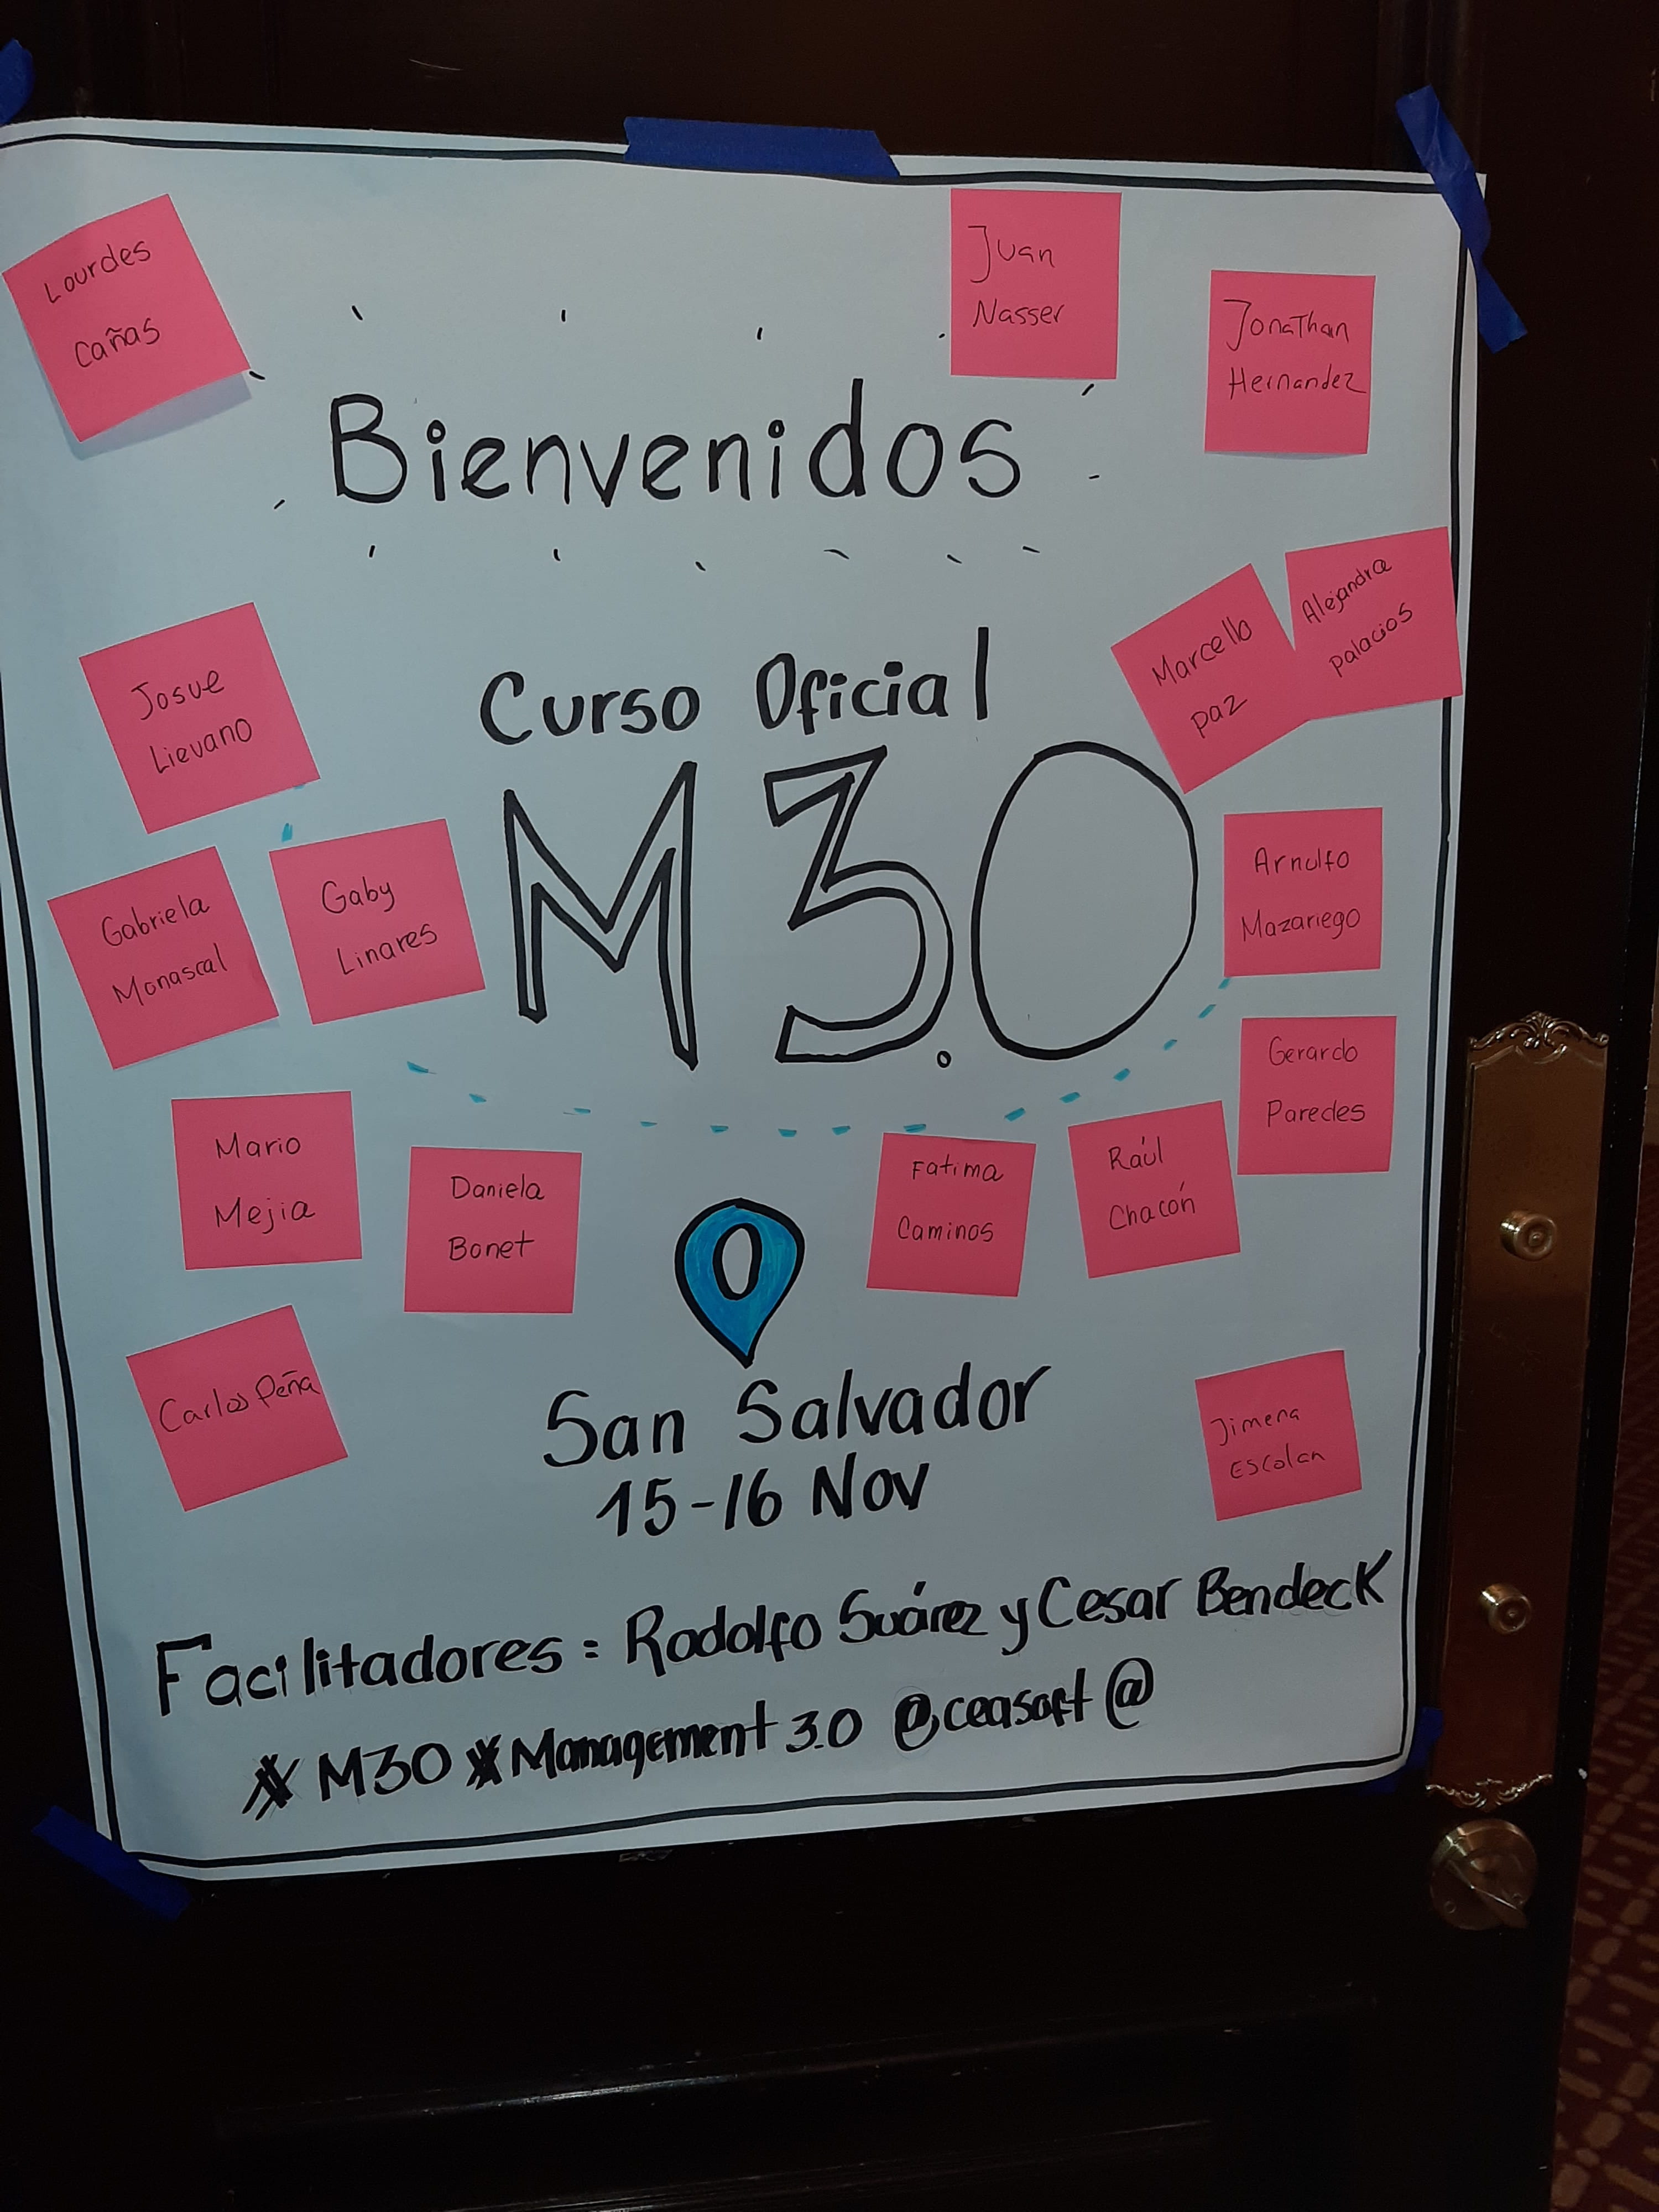 Lourdes
Cañas
Juan
Nasser
Jonathan
Hernandez
Bienvenidos
Marcello
paz
Alejandra
palacios
Josue
Lievano
Curso Oficial
M 3.0
Gabriela
Monascal
Gaby
Linares
Arnulfo
Mazariego
Gerardo
Paredes
Mario
Mejia
Daniela
Bonet
Fatima
Caminos
Raúl
Chacón
Carlos Peña
Jimena
Escolan
San Salvador
15-16 Nov
Facilitadores: Rodolfo Suárez y Cesar Bendeck
# M30 # Management 3.0 @ceasoft @